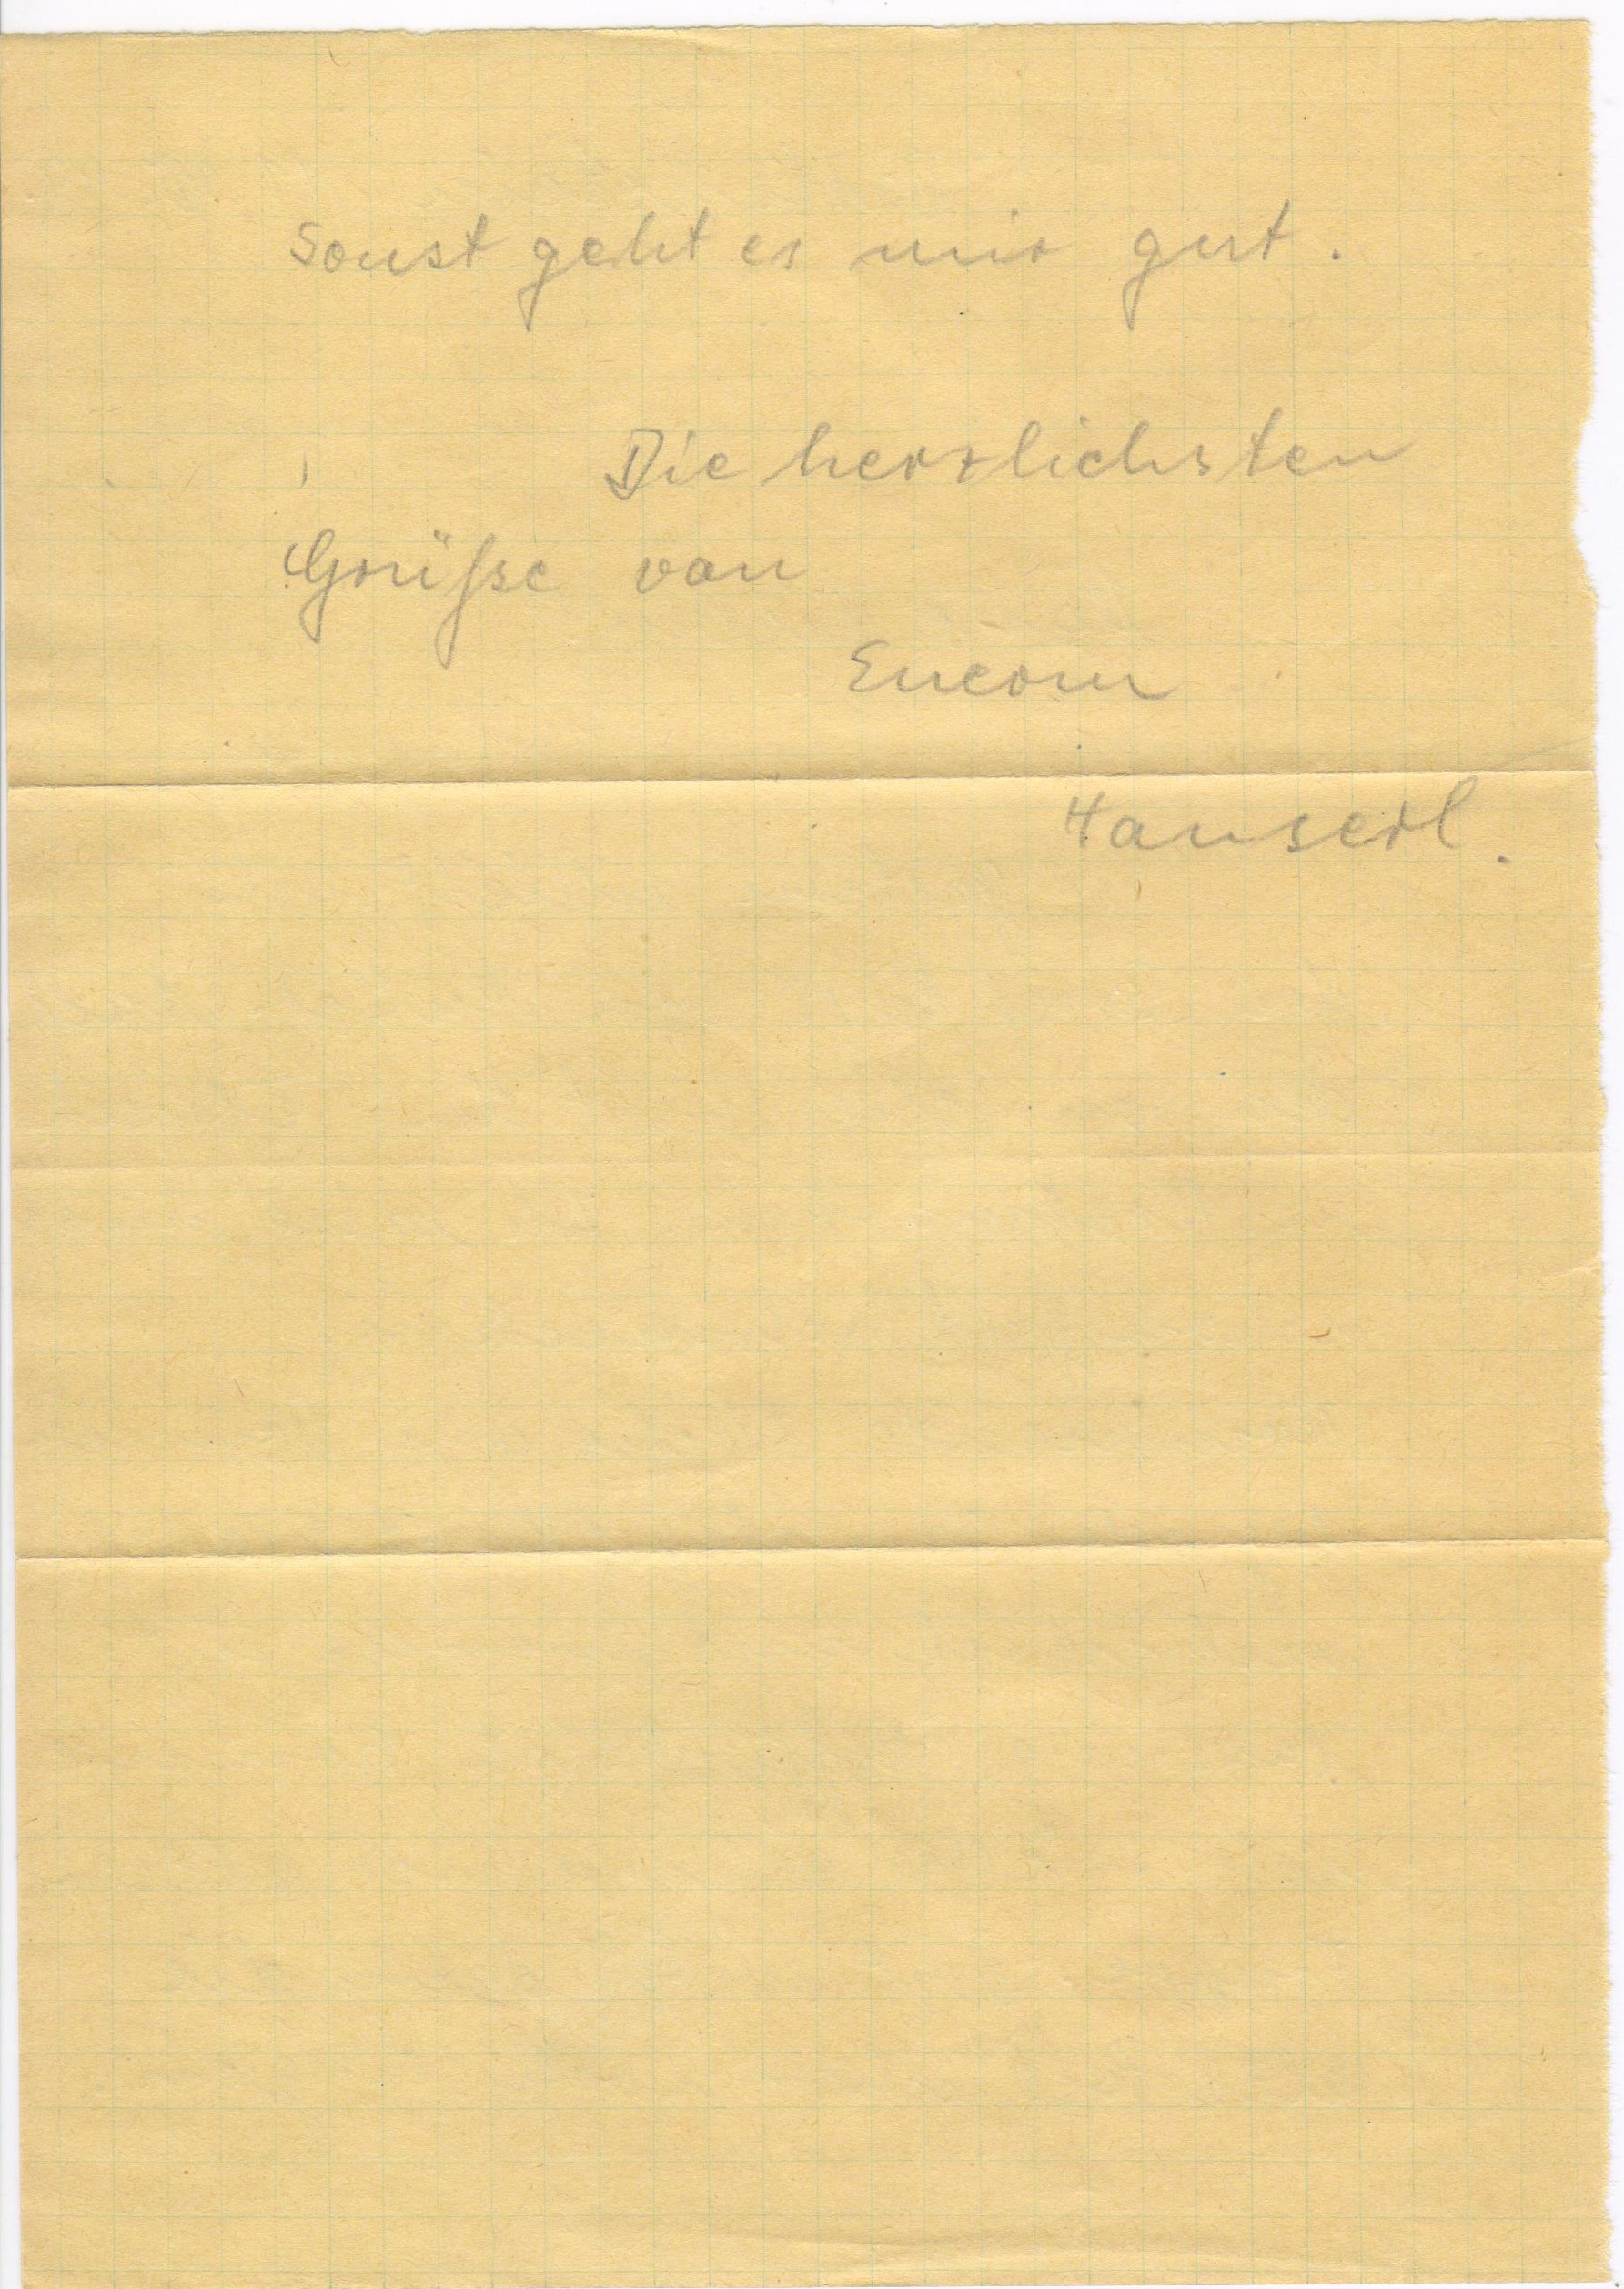 Sonst geht es mir gut.
Die herzlichsten
Grüße von
Eurem
Hanserl.